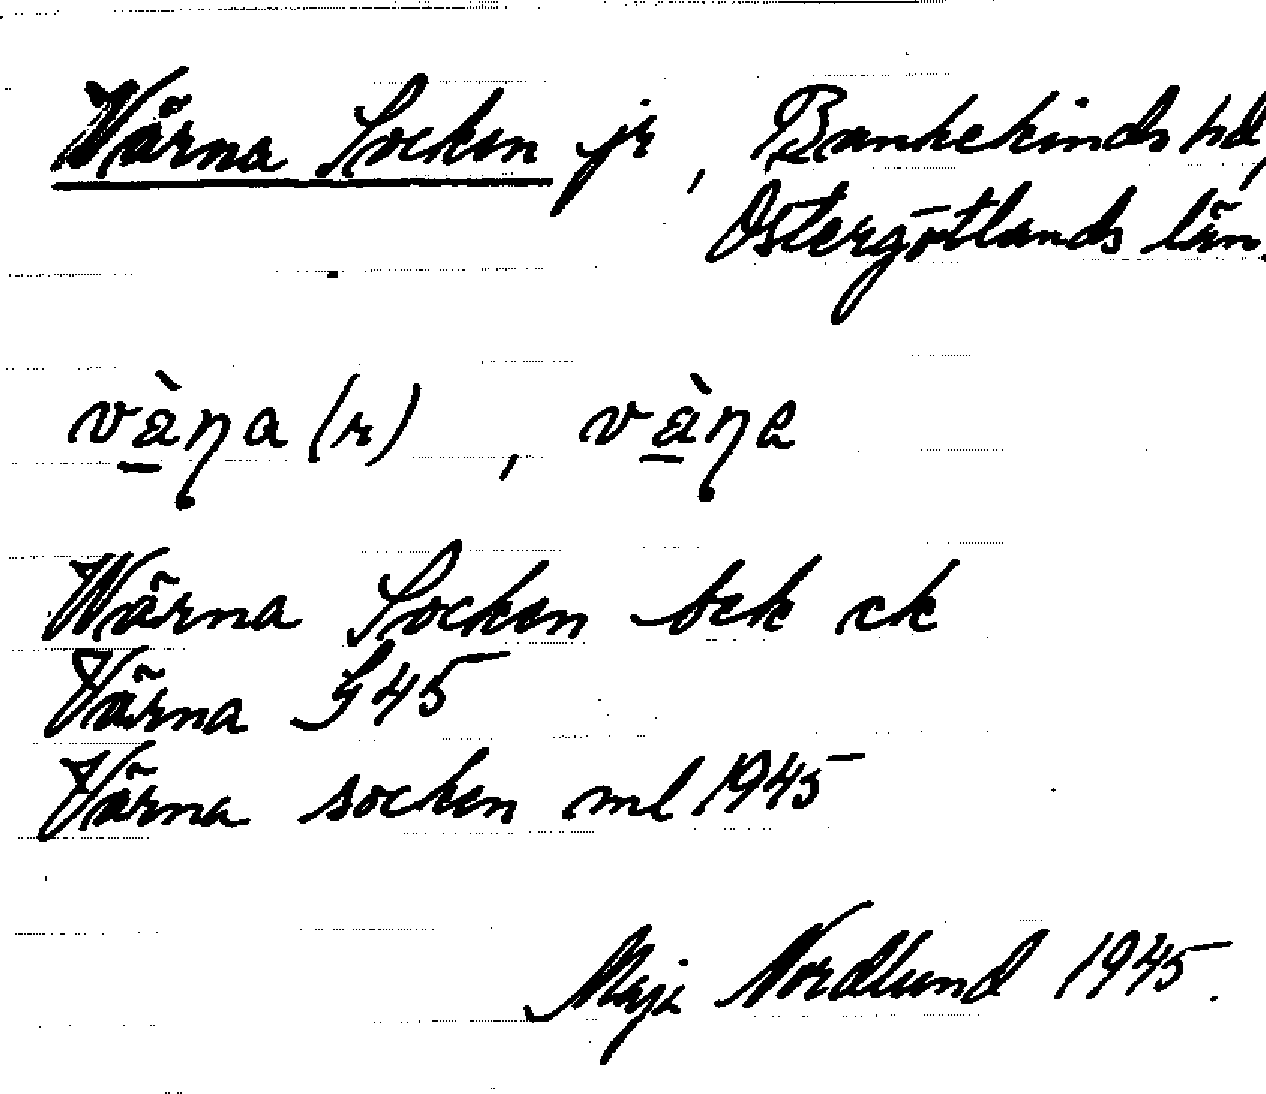 Wärna Socken jr, Bankekinds hd,
Östergötlands län.
và̱ɳa (r), và̱ɳe
Wärna Socken ck
Värna J 45
Värna socken ml 1945
Maja Nordlund 1945.